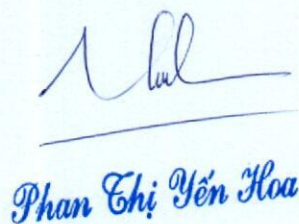 Phan Thị Yến Hoa